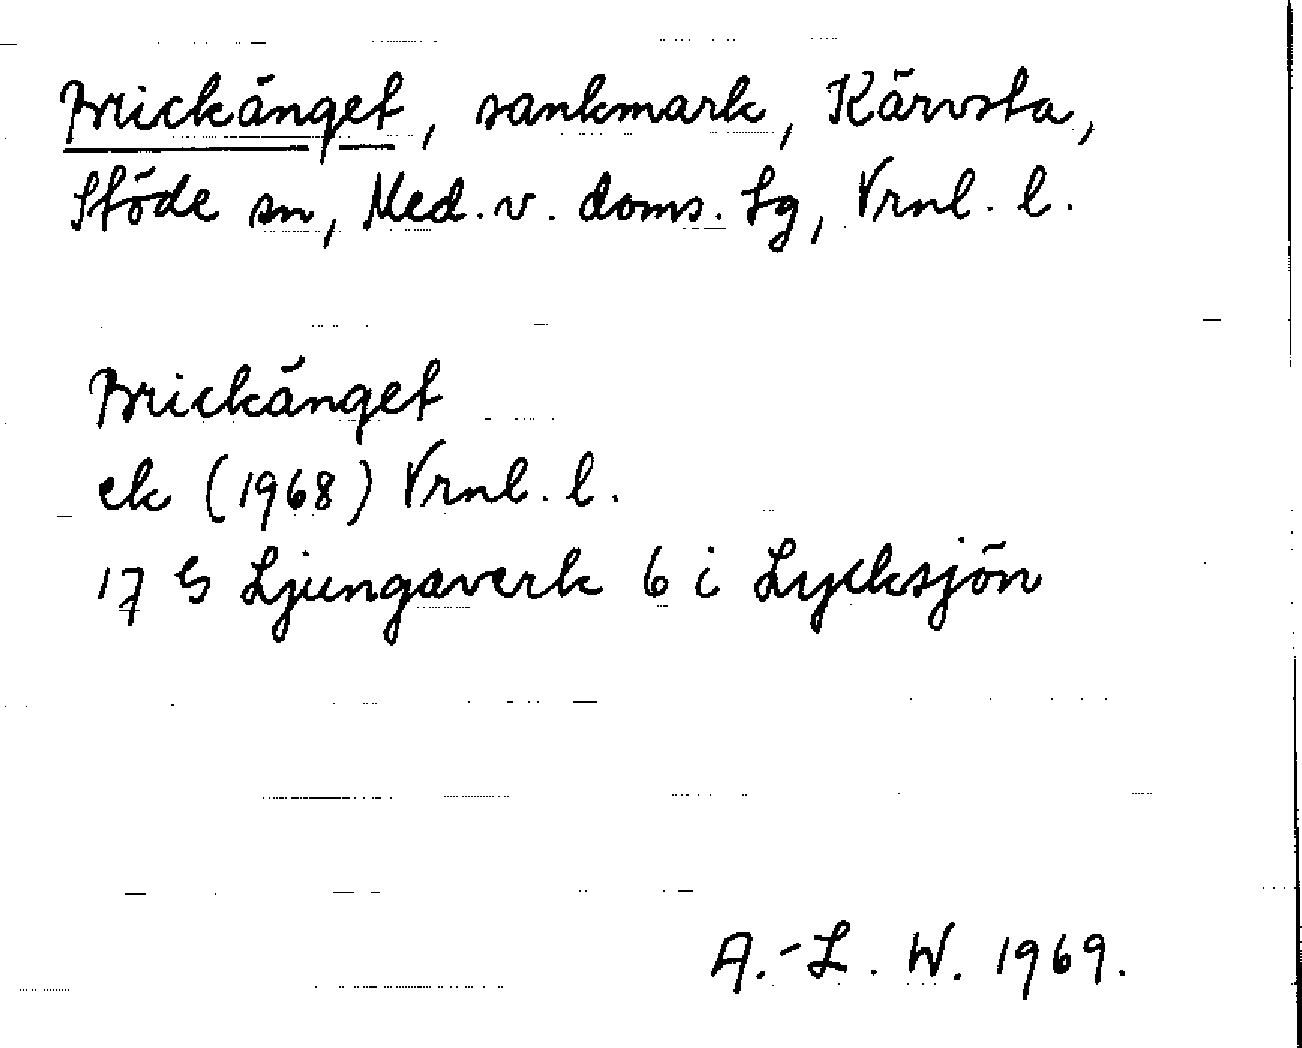 Brickänget, sankmark, Kärvsta,
Stöde sn, Med. v. doms. Lg, Vrnl. l.
Brickänget
ek (1968) Vrnl. l.
17 G Ljungaverk 6 i Lycksjön
A.-L. W. 1969.